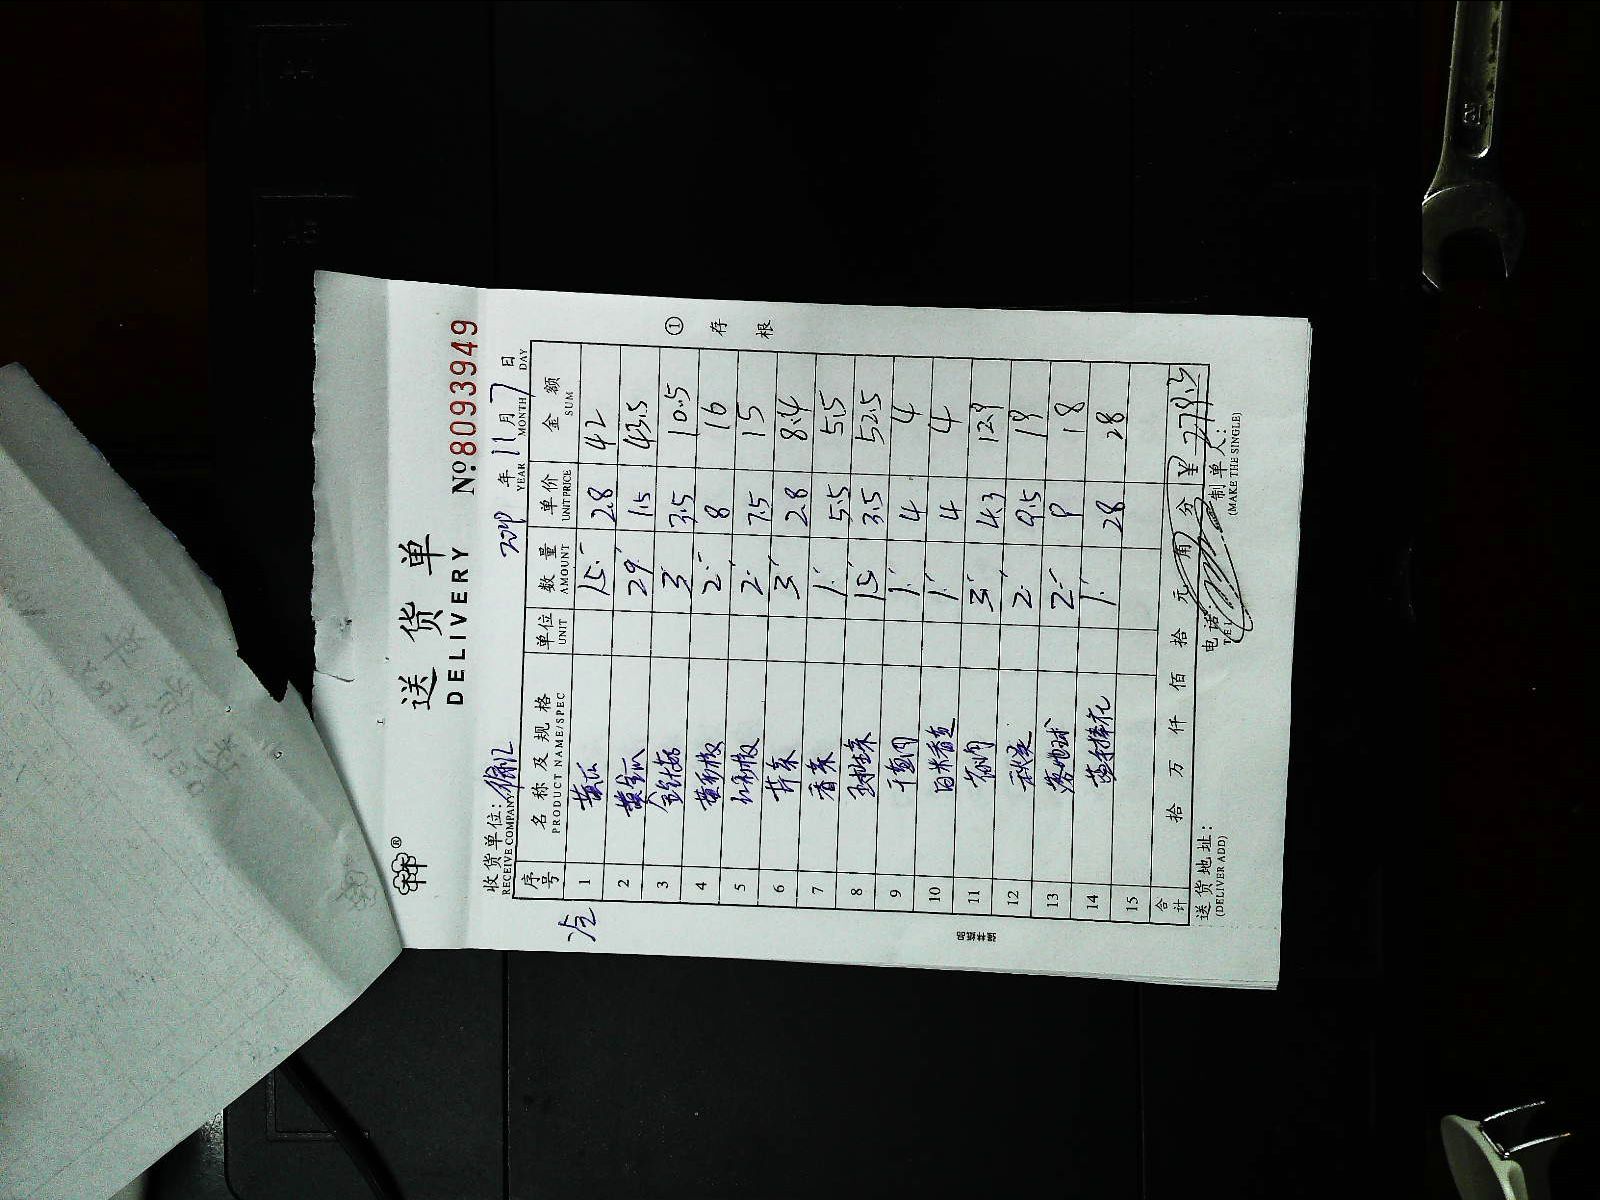 送货单
DELIVERY
No:8093949
收货单位:
RECEIVE COMPANY
年 11 月 7 日
YEAR MONTH DAY
冷
序号 名称及规格 单位 数量 单价 金额
PRODUCT NAME/SPEC UNIT AMOUNT UNIT PRICE SUM
1 黄瓜 15 2.8 42
2 黄金瓜 29 1.5 43.5
3 3 3.5 10.5
4 黄彩椒 2 8 16
5 红彩椒 2 7.5 15
6 芹菜 3 2.8 8.4
7 香菜 1 5.5 5.5
8 球生菜 15 3.5 52.5
9 1 4 4
10 1 4 4
11 3 4.3 12.9
12 2 9.5 19
13 2 9 18
14 1 28 28
15
合计 拾 万 仟 佰 拾 元 角 分 ¥
送货地址: 电话: 制单人:
(DELIVER ADD) TEL (MAKE THE SINGLE)
① 存根